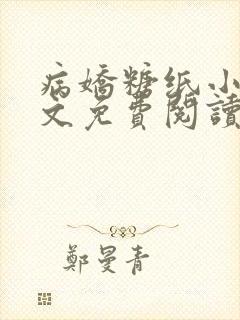 病嬌糖纸小
文免費閱讀
鄭曼青